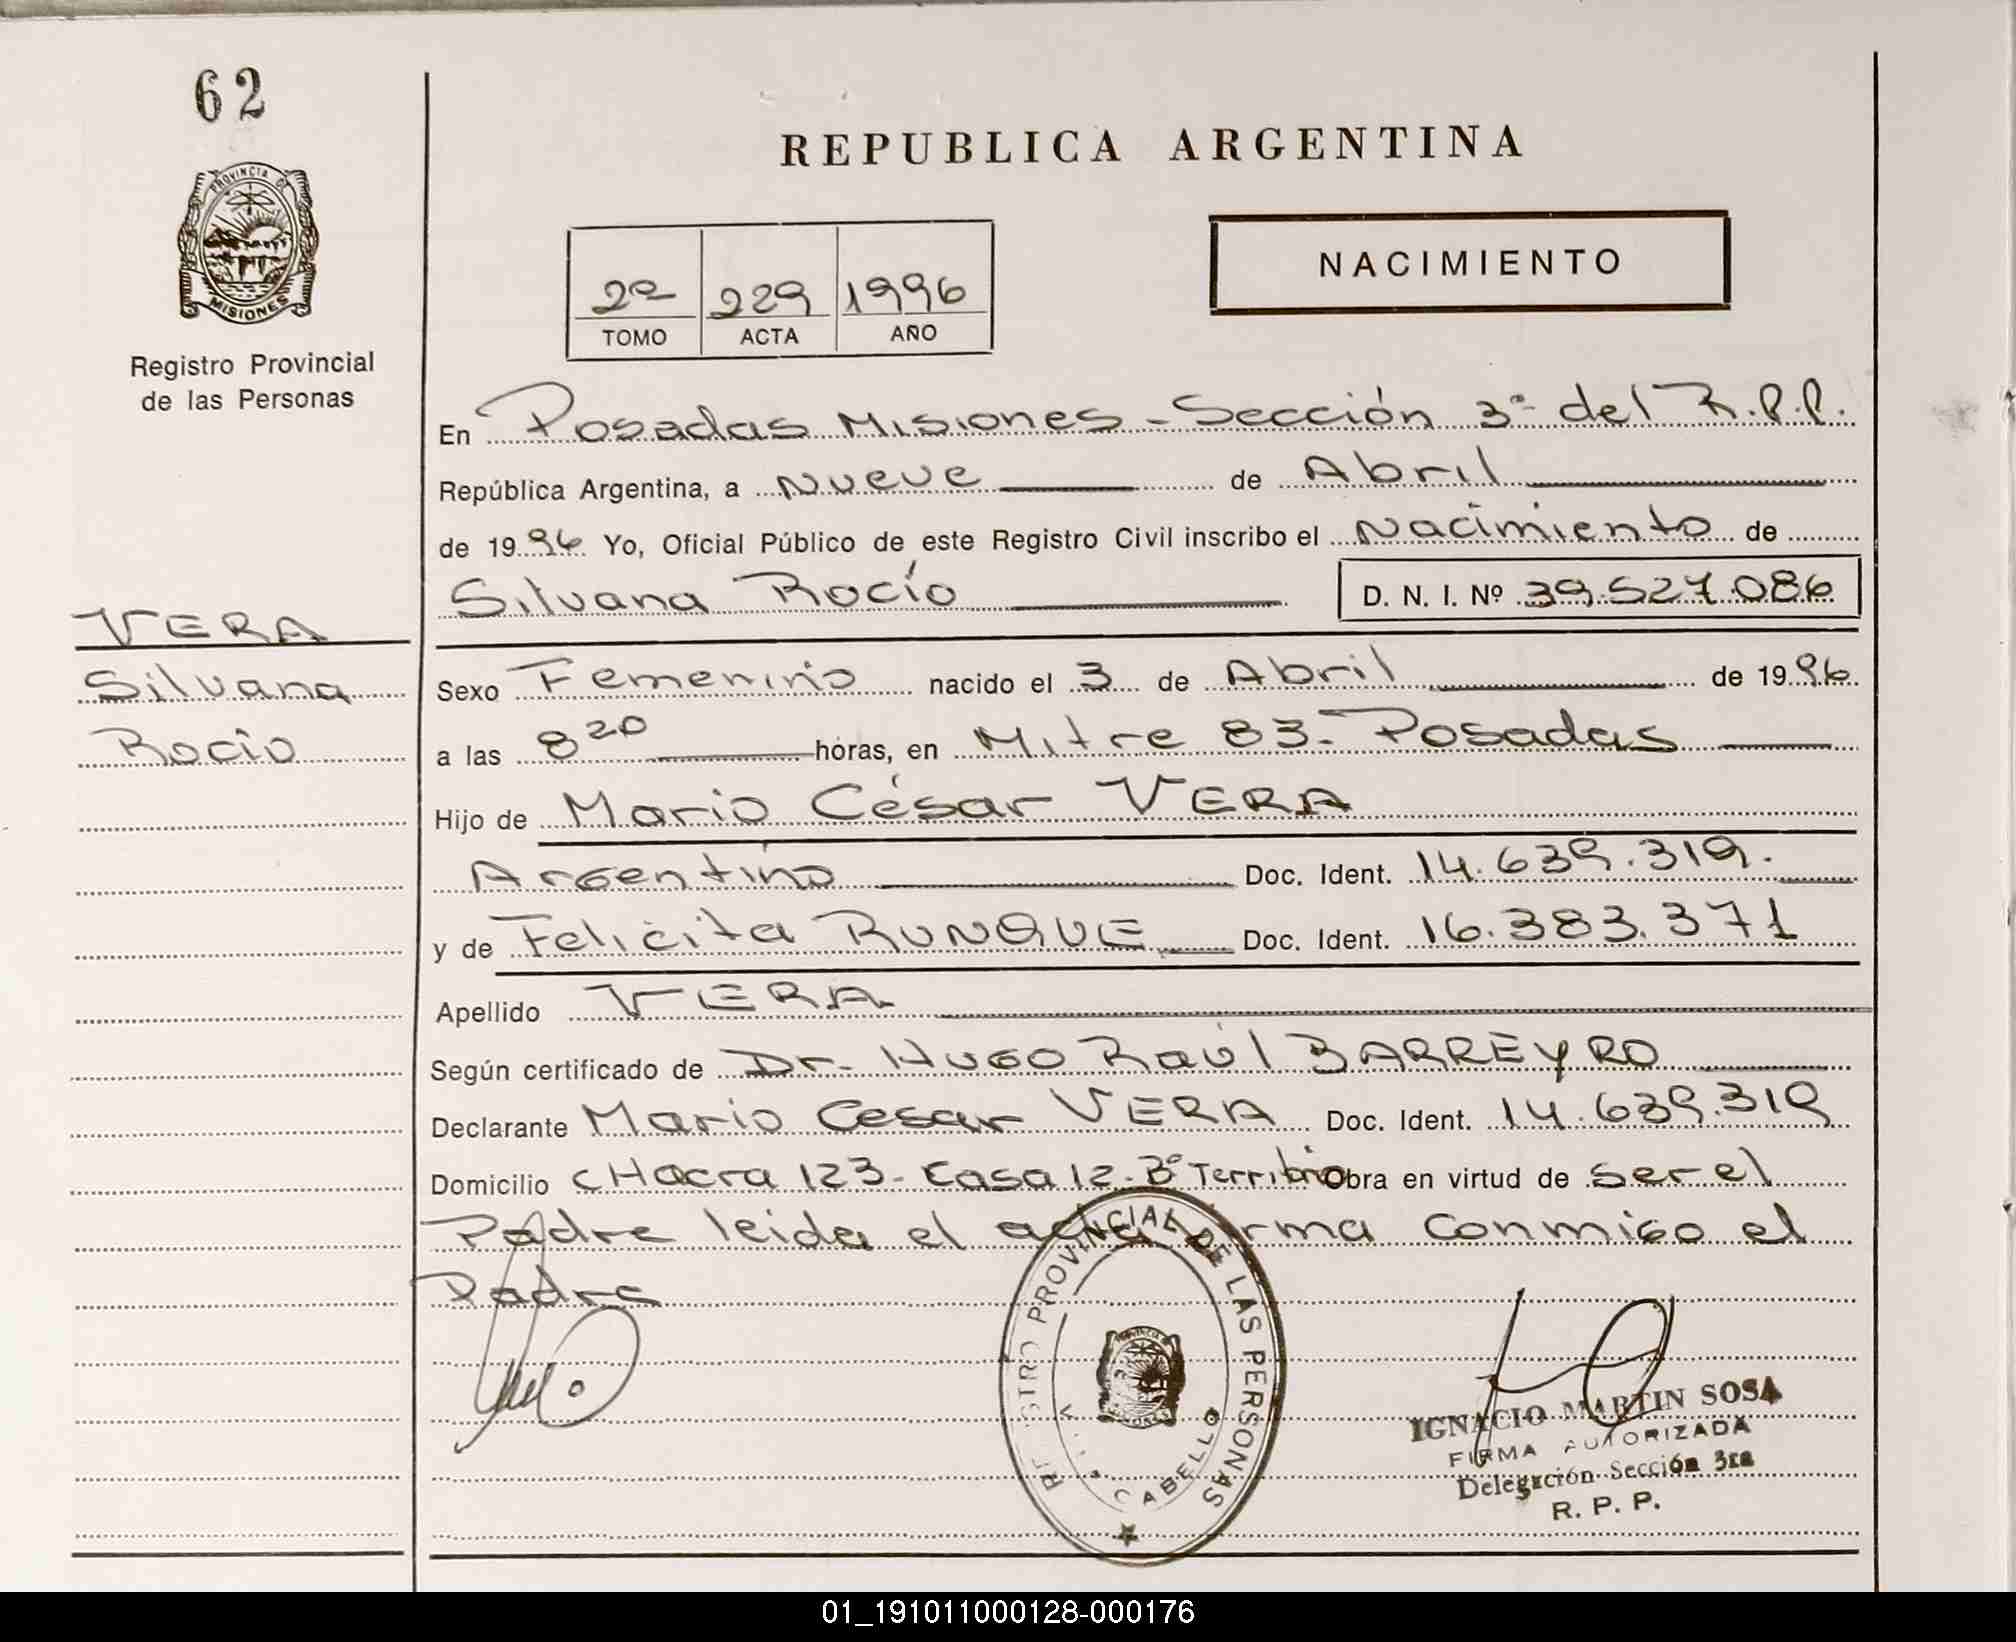 62
PROVINCIA DE
MISIONES
Registro Provincial
de las Personas
REPUBLICA ARGENTINA
2º 229 1996
TOMO ACTA AÑO
NACIMIENTO
En Posadas Misiones - Sección 3ª del R.P.P.
República Argentina, a Nueve de Abril
de 1996 Yo, Oficial Público de este Registro Civil inscribo el Nacimiento de
Silvana Rocío D. N. I. Nº 39.527.086
VERA
Silvana
Rocío
Sexo Femenino nacido el 3 de Abril de 1996
a las 8 20 horas, en Mitre 83 - Posadas
Hijo de Mario César VERA
Argentino Doc. Ident. 14.639.319.
y de Felicita RUNQUE Doc. Ident. 16.383.371
Apellido VERA
Según certificado de Dr. Hugo Raúl BARREYRO
Declarante Mario Cesar VERA Doc. Ident. 14.639.319
Domicilio CHacra 123 - Casa 12 - Bº Territorio Obra en virtud de ser el
Padre leida el acta firma conmigo el
Padre
PROVINCIAL DE LAS PERSONAS
CABELLO
IGNACIO MARTIN SOSA
FIRMA AUTORIZADA
Delegación Sección 3ra
R. P. P.
01_191011000128-000176